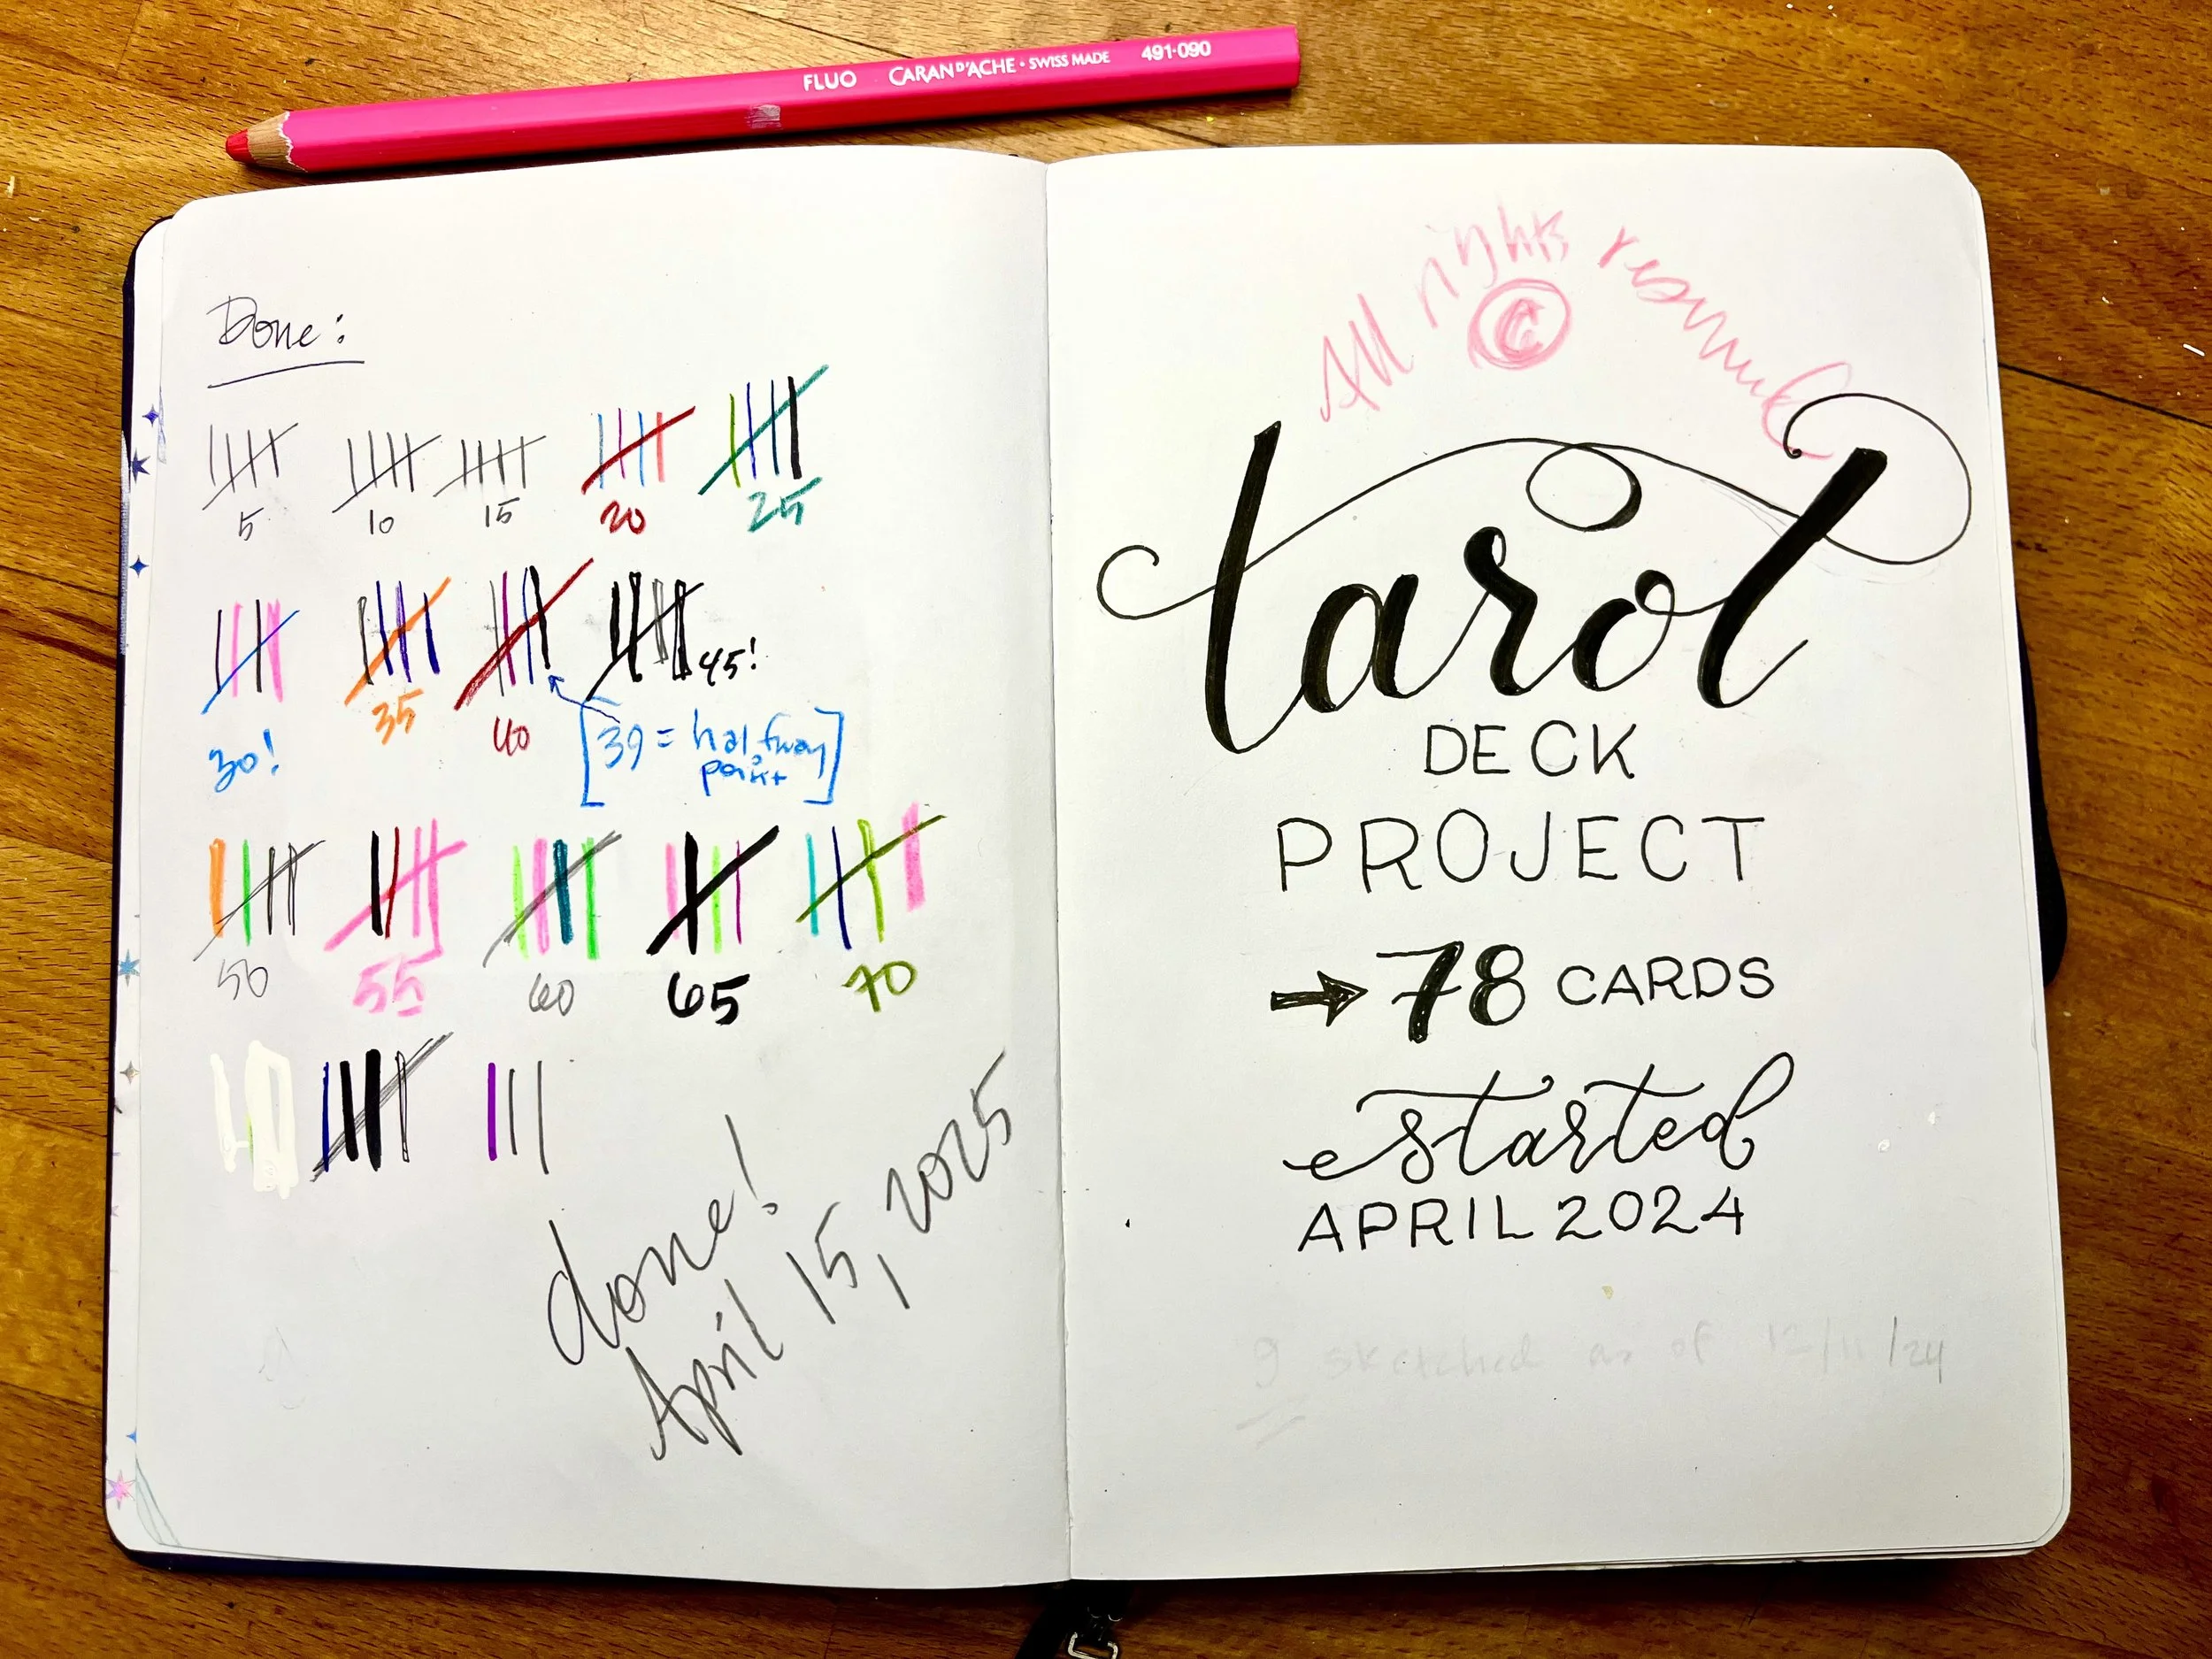 FLUO CARAN D'ACHE • SWISS MADE 491·090
Done:
5 10 15 20 25
30! 35 40 45!
[39 = halfway
point]
50 55 60 65 70
done!
April 15, 2025
All rights reserved
©
tarot
DECK
PROJECT
→ 78 CARDS
started
APRIL 2024
9 sketched as of 12/11/24